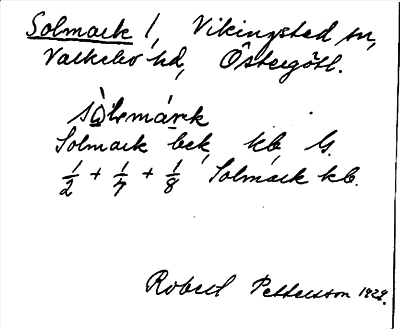 Solmark 1, Vikingstad sn,
Valkebo hd, Östergötl.
sòlemárk
Solmark bek, kb G.
1/2 + 1/7 + 1/8 Solmark kb.
Robert Petterson 1929.